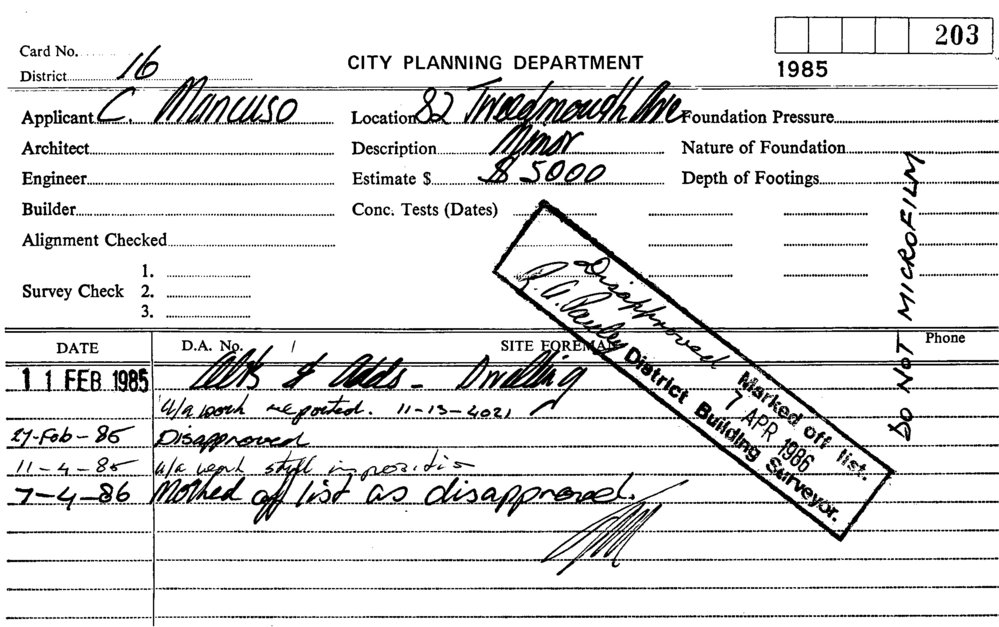 203
Card No.
CITY PLANNING DEPARTMENT
1985
District 16
Applicant C. Mancuso
Location 82 Tweedmouth Ave
Foundation Pressure
Architect
Description Minor
Nature of Foundation
Engineer
Estimate $ $ 5000
Depth of Footings
Builder
Conc. Tests (Dates)
Alignment Checked
1.
Survey Check 2.
3.
DO NOT MICROFILM
Disapproved
Marked off list.
R. A. Pauley
7 APR 1986
District Building Surveyor.
DATE
D.A. No.
SITE FOREMAN
Phone
11 FEB 1985 Alts & Adds - Dwelling
u/a work reported. 11-13-4021
27-Feb-85 Disapproved
11-4-85 u/a work still
7-4-86 Marked off list as disapproved.